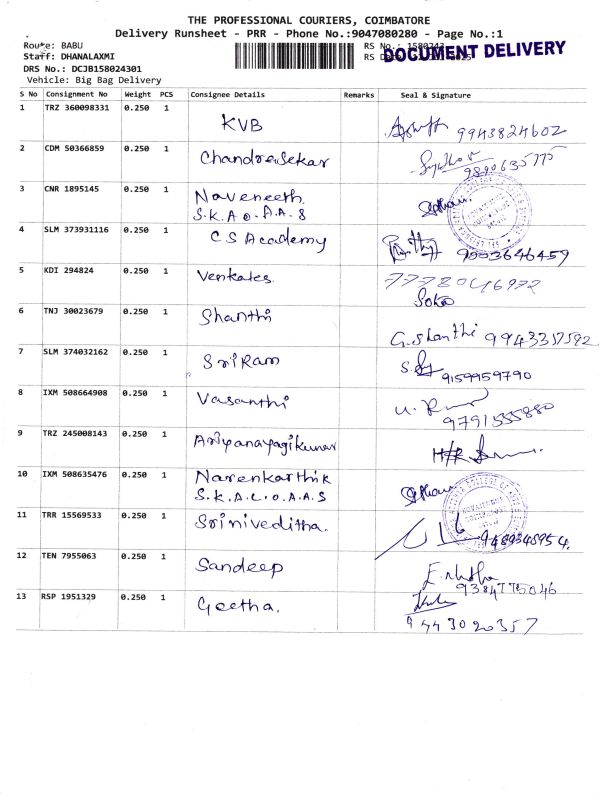 THE PROFESSIONAL COURIERS, COIMBATORE
Delivery Runsheet - PRR - Phone No.:9047080280 - Page No.:1
Route: BABU
RS No.:
DOCUMENT DELIVERY
Staff: DHANALAXMI
RS
DRS No.: DCJB158024301
Vehicle: Big Bag Delivery
S No Consignment No Weight PCS Consignee Details Remarks Seal & Signature
1 TRZ 360098331 0.250 1 KVB 9943824602
2 CDM 50366859 0.250 1 Chandrasekar
3 CNR 1895145 0.250 1 Navaneeth.
S.K.A.O.A.A.S
4 SLM 373931116 0.250 1 CS Academy 9003646459
5 KDI 294824 0.250 1 Venkates.
6 TNJ 30023679 0.250 1 Shanthi G. Shanthi 9943357592
7 SLM 374032162 0.250 1 SriRam 9159959790
8 IXM 508664908 0.250 1 Vasanthi 9791555880
9 TRZ 245008143 0.250 1 Ariyanayagikumar
10 IXM 508635476 0.250 1 Narenkarthik
S.K.A.C.O.A.A.S
11 TRR 15569533 0.250 1 Sriniveditha.
12 TEN 7955063 0.250 1 Sandeep
9384775046
13 RSP 1951329 0.250 1 Geetha.
9443020357